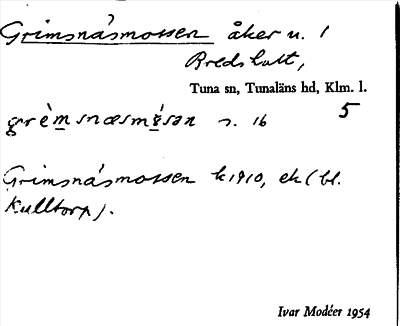 Grimsnäsmossen åker u. 1
Bredshult,
Tuna sn, Tunaläns hd, Klm. l.
5
s. 16
Grimsnäsmossen k 1910, ek (bl.
Kulltorp).
Ivar Modéer 1954